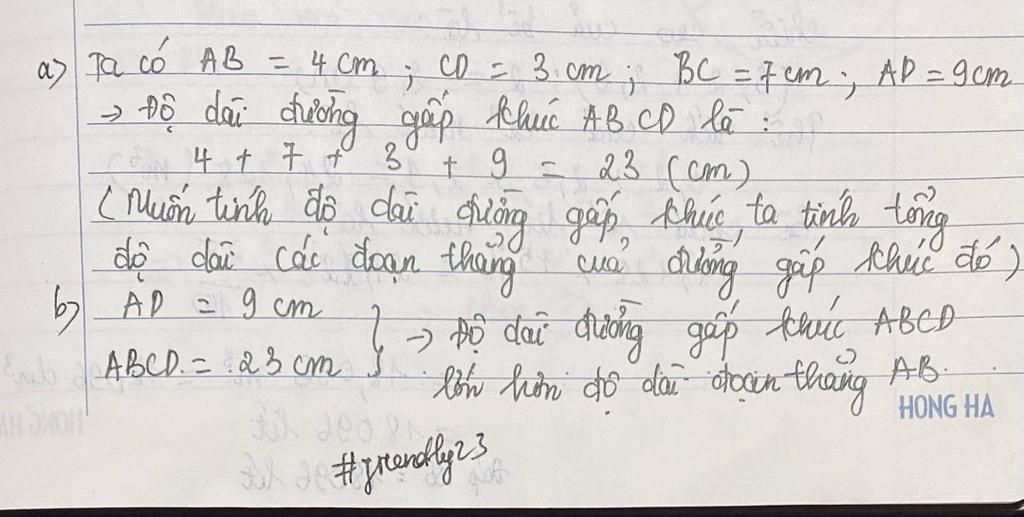 a) Ta có AB = 4 cm ; CD = 3 cm ; BC = 7 cm ; AD = 9 cm
→ Độ dài đường gấp khúc ABCD là :
4 + 7 + 3 + 9 = 23 (cm)
(Muốn tính độ dài đường gấp khúc, ta tính tổng
độ dài các đoạn thẳng của đường gấp khúc đó)
b) AD = 9 cm
ABCD = 23 cm } → Độ dài đường gấp khúc ABCD
lớn hơn độ dài đoạn thẳng AB.
HONG HA
#friendly23